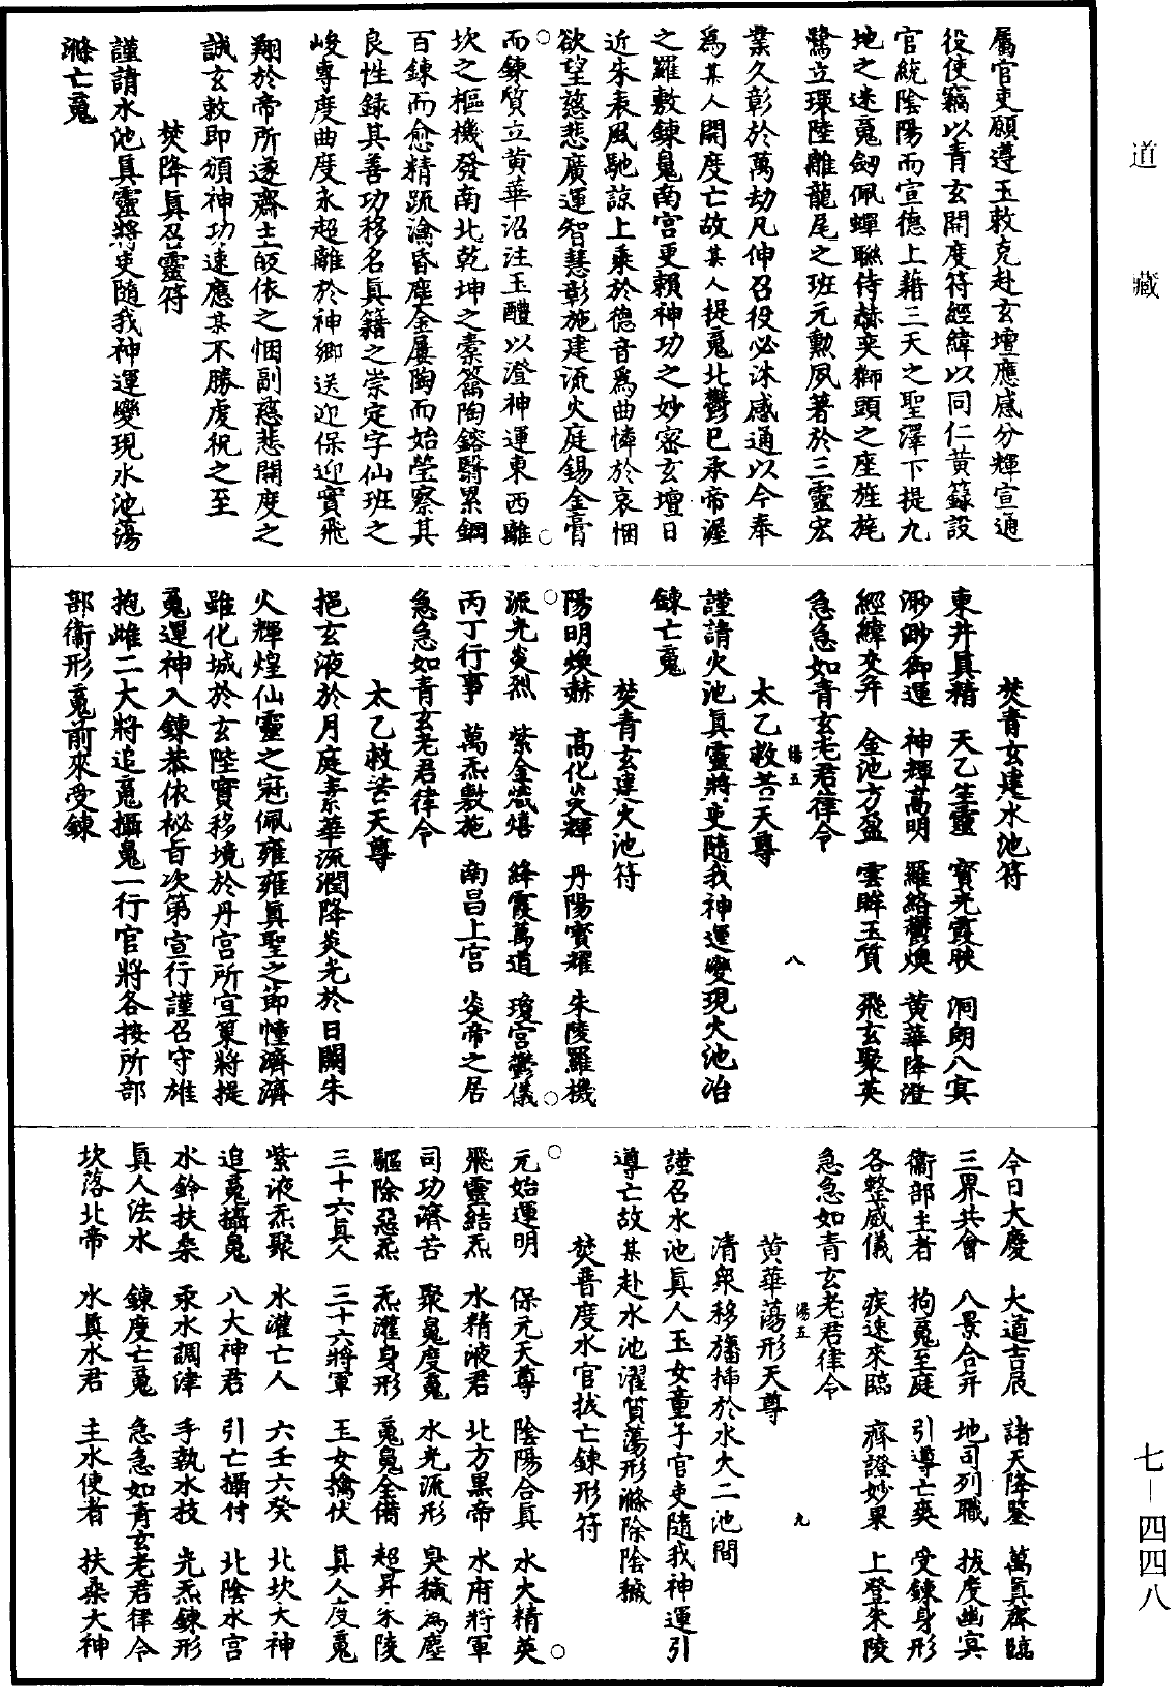 屬官吏願遵玉敕克赴玄壇應感分輝宣通
役使竊以青玄開度符經緯以同仁黃籙設
官統陰陽而宣德上藉三天之聖澤下提九
地之迷䰟劒佩蟬聯侍赫奕獅頭之座旌旄
鷺立環陸離龍尾之班元勳夙著於三靈宏
業久彰於萬劫凡伸召役必沐感通以今奉
爲某人開度亡故某人提䰟北酆已承帝渥
之羅敷鍊䰟南宮更賴神功之妙密玄壇日
近朱表風馳諒上乘於德音爲曲憐於哀悃
欲望慈悲廣運智慧彰施建流火庭錫金膏
而鍊質立黃華沼注玉醴以澄神運東西離
坎之樞機發南北乾坤之橐籥陶鎔翳累鋼
百鍊而愈精疏瀹昏塵金屢陶而始瑩察其
良性録其善功移名眞籍之崇定字仙班之
峻專度曲度永超離於神鄉送迎保迎實飛
翔於帝所遂齋士皈依之悃副慈悲開度之
誠玄敕卽頒神功速應某不勝虔祝之至
焚降眞召靈符
謹請水池眞靈將吏隨我神運變現水池蕩
滌亡䰟
焚青玄建水池符
東井眞精　天乙生靈　寶光霞映　洞朗八冥
渺渺御運　神輝高明　羅絡鬱煥　黃華降澄
經緯交弁　金池方盈　雲眸玉質　飛玄聚英
急急如青玄老君律令
太乙救苦天尊
謹請火池眞靈將吏隨我神運變現火池冶
鍊亡䰟
焚青玄建火池符
陽明煥赫　高化炎輝　丹陽寶耀　朱陵羅機
流光炎烈　紫金熾熺　絳霞萬道　瓊宮鬱儀
丙丁行事　萬炁敷施　南昌上宮　炎帝之居
急急如青玄老君律令
太乙救苦天尊
挹玄液於月庭素華流潤降炎光於日闕朱
火輝煌仙靈之冠佩雍雍眞聖之節幢濟濟
雖化城於玄陛實移境於丹宮所宜稟將提
䰟運神入鍊恭依祕旨次第宣行謹召守雄
抱雌二大將追䰟攝䰟一行官將各按所部
部衞形䰟前來受鍊
今日大慶　大道吉辰　諸天降鑒　萬眞齊臨
三界共會　八景合幷　地司列職　拔度幽冥
衞部主者　拘䰟至庭　引導亡爽　受鍊身形
各整威儀　疾速來臨　齊證妙果　上登朱陵
急急如青玄老君律令
黃華蕩形天尊
清衆移旛揷於水火二池間
謹召水池眞人玉女童子官吏隨我神運引
導亡故某赴水池濯質蕩形滌除陰穢
焚普度水官拔亡鍊形符
元始運明　保元天尊　陰陽合眞　水火精英
飛靈結炁　水精液君　北方黑帝　水府將軍
司功濟苦　聚䰟度䰟　水光流形　臭穢爲塵
驅除惡炁　炁灌身形　䰟䰟全備　超昇朱陵
三十六眞人　三十六將軍　玉女擒伏　眞人度䰟
紫液炁聚　水灌亡人　六壬六癸　北坎大神
追䰟攝䰟　八大神君　引亡攝付　北陰水宮
水鈴扶桑　汞水調津　手執水技　光炁鍊形
眞人法水　鍊度亡䰟　急急如青玄老君律令
坎落北帝　水眞水君　主水使者　扶桑大神
道藏
七－四四八
八
九